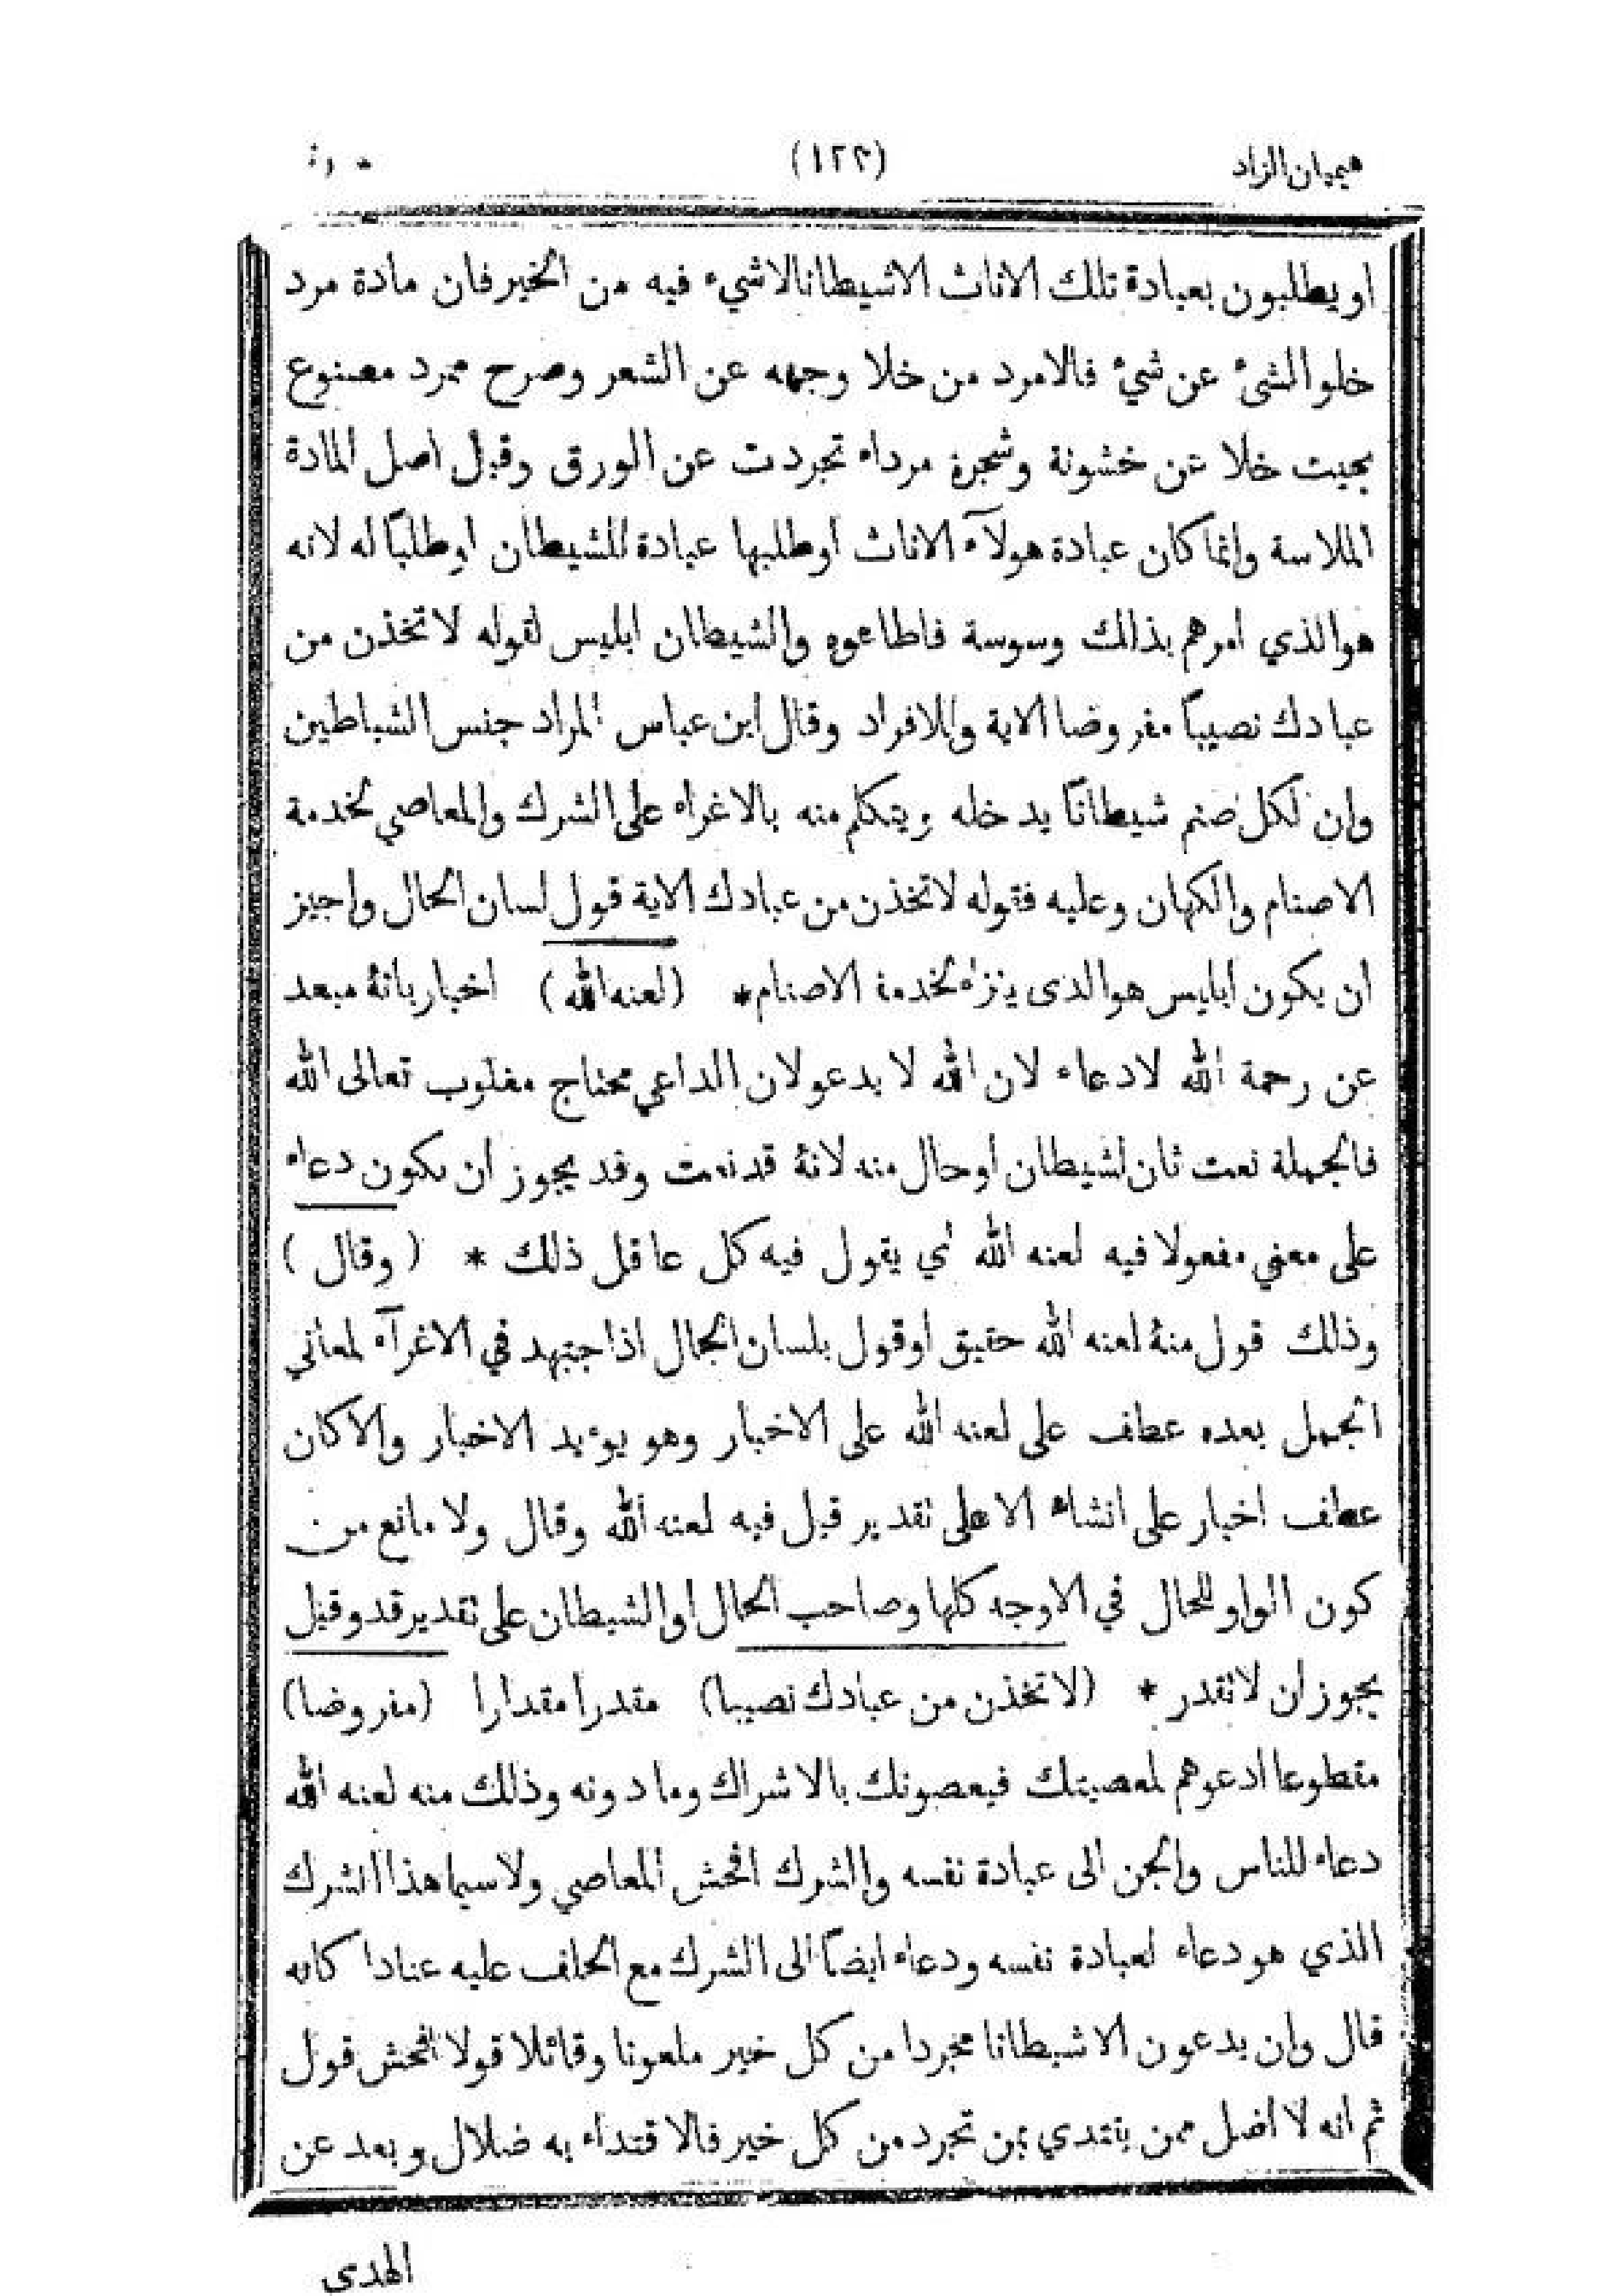 هيميان الزاد (١٢٢)
او يطلبون بعبادة تلك الاناث الاشيطانا لاشيء فيه من الخير فان مادة مرد
خلو الشئ عن شيء فالامرد من خلا وجهه عن الشعر وصرح ممرد مصنوع
بحيث خلا عن خشونة وشجرة مرداء تجردت عن الورق وقيل اصل المادة
الملاسة وانما كان عبادة هولآء الاناث او طلبها عبادة للشيطان او طلبًا له لانه
هو الذي امرهم بذلك وسوسة فاطاعوه والشيطان ابليس لقوله لاتخذن من
عبادك نصيبًا مفروضا الاية وللافراد وقال ابن عباس المراد جنس الشياطين
وان لكل صنم شيطانًا يدخله ويتكلم منه بالاغراء على الشرك والمعاصي لخدمة
الاصنام والكهان وعليه فقوله لاتخذن من عبادك الاية قول لسان الحال واجيز
ان يكون ابليس هو الذى لخدمة الاصنام * (لعنه الله) اخبار بانهُ مبعد
عن رحمة الله لا دعاء لان الله لا يدعو لان الداعي محتاج مغلوب تعالى الله
فالجملة نعت ثان لشيطان او حال منه لانهُ قد نعت وقد يجوز ان يكون دعاء
على معنى مفعولا فيه لعنه الله اي يقول فيه كل عاقل ذلك * (وقال)
وذلك قول منهُ لعنه الله حقيق او قول بلسان الحال اذا جتهد في الاغرآء لمعاني
الجمل بعده عطف على لعنه الله على الاخبار وهو يوءيد الاخبار والاكان
عطف اخبار على انشاء الا على تقدير قيل فيه لعنه الله وقال ولا مانع من
كون الواو للحال في الاوجه كلها وصاحب الحال او الشيطان على تقدير قد وقيل
يجوز ان لا تقدر * (لاتخذن من عبادك نصيبا) مقدرا مقدارا (مفروضا)
مقطوعا ادعوهم لمعصيتك فيعصونك بالاشراك وما دونه وذلك منه لعنه الله
دعاء للناس والجن الى عبادة نفسه والشرك افحش المعاصي ولاسيما هذا الشرك
الذي هو دعاء لعبادة نفسه ودعاء ايضًا الى الشرك مع الحلف عليه عنادا كانه
قال وان يدعون الا شيطانا مجردا من كل خير ملعونا وقائلا قولا افحش قول
ثم انه لا اضل ممن يقتدي بمن تجرد من كل خير فالاقتداء به ضلال وبعد عن
الهدى